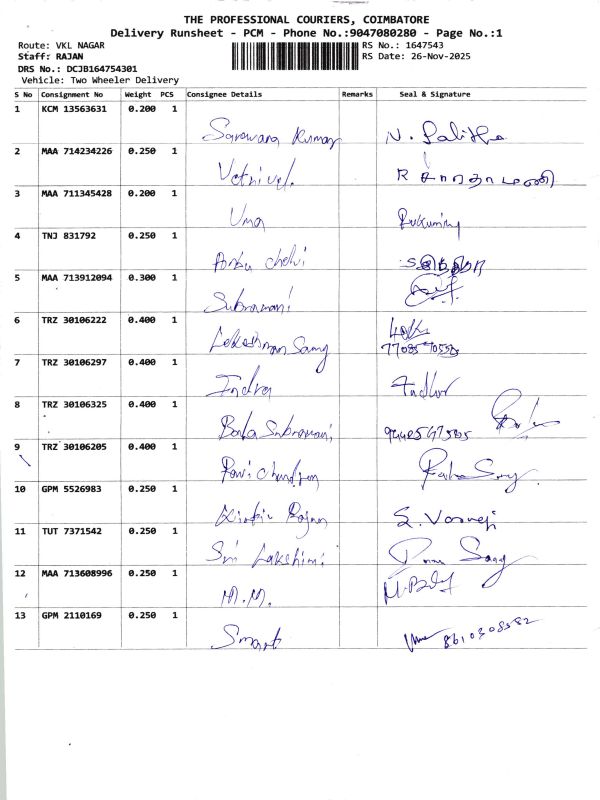 THE PROFESSIONAL COURIERS, COIMBATORE
Delivery Runsheet - PCM - Phone No.:9047080280 - Page No.:1
Route: VKL NAGAR RS No.: 1647543
Staff: RAJAN RS Date: 26-Nov-2025
DRS No.: DCJB164754301
Vehicle: Two Wheeler Delivery
S No Consignment No Weight PCS Consignee Details Remarks Seal & Signature
1 KCM 13563631 0.200 1
Saravana Kumar N. Lalitha
2 MAA 714234226 0.250 1
Vetrivel. R சாரதாமணி
3 MAA 711345428 0.200 1
Uma Rukumini
4 TNJ 831792 0.250 1
Anbu chelvi
5 MAA 713912094 0.300 1
Subramani
6 TRZ 30106222 0.400 1
Lakshman Samy
7 TRZ 30106297 0.400 1
Indra
8 TRZ 30106325 0.400 1
Bala Subramani,
9 TRZ 30106205 0.400 1
Ravi Chandran
10 GPM 5526983 0.250 1
11 TUT 7371542 0.250 1
Sri Lakshmi
12 MAA 713608996 0.250 1
M.M.
13 GPM 2110169 0.250 1
Smart